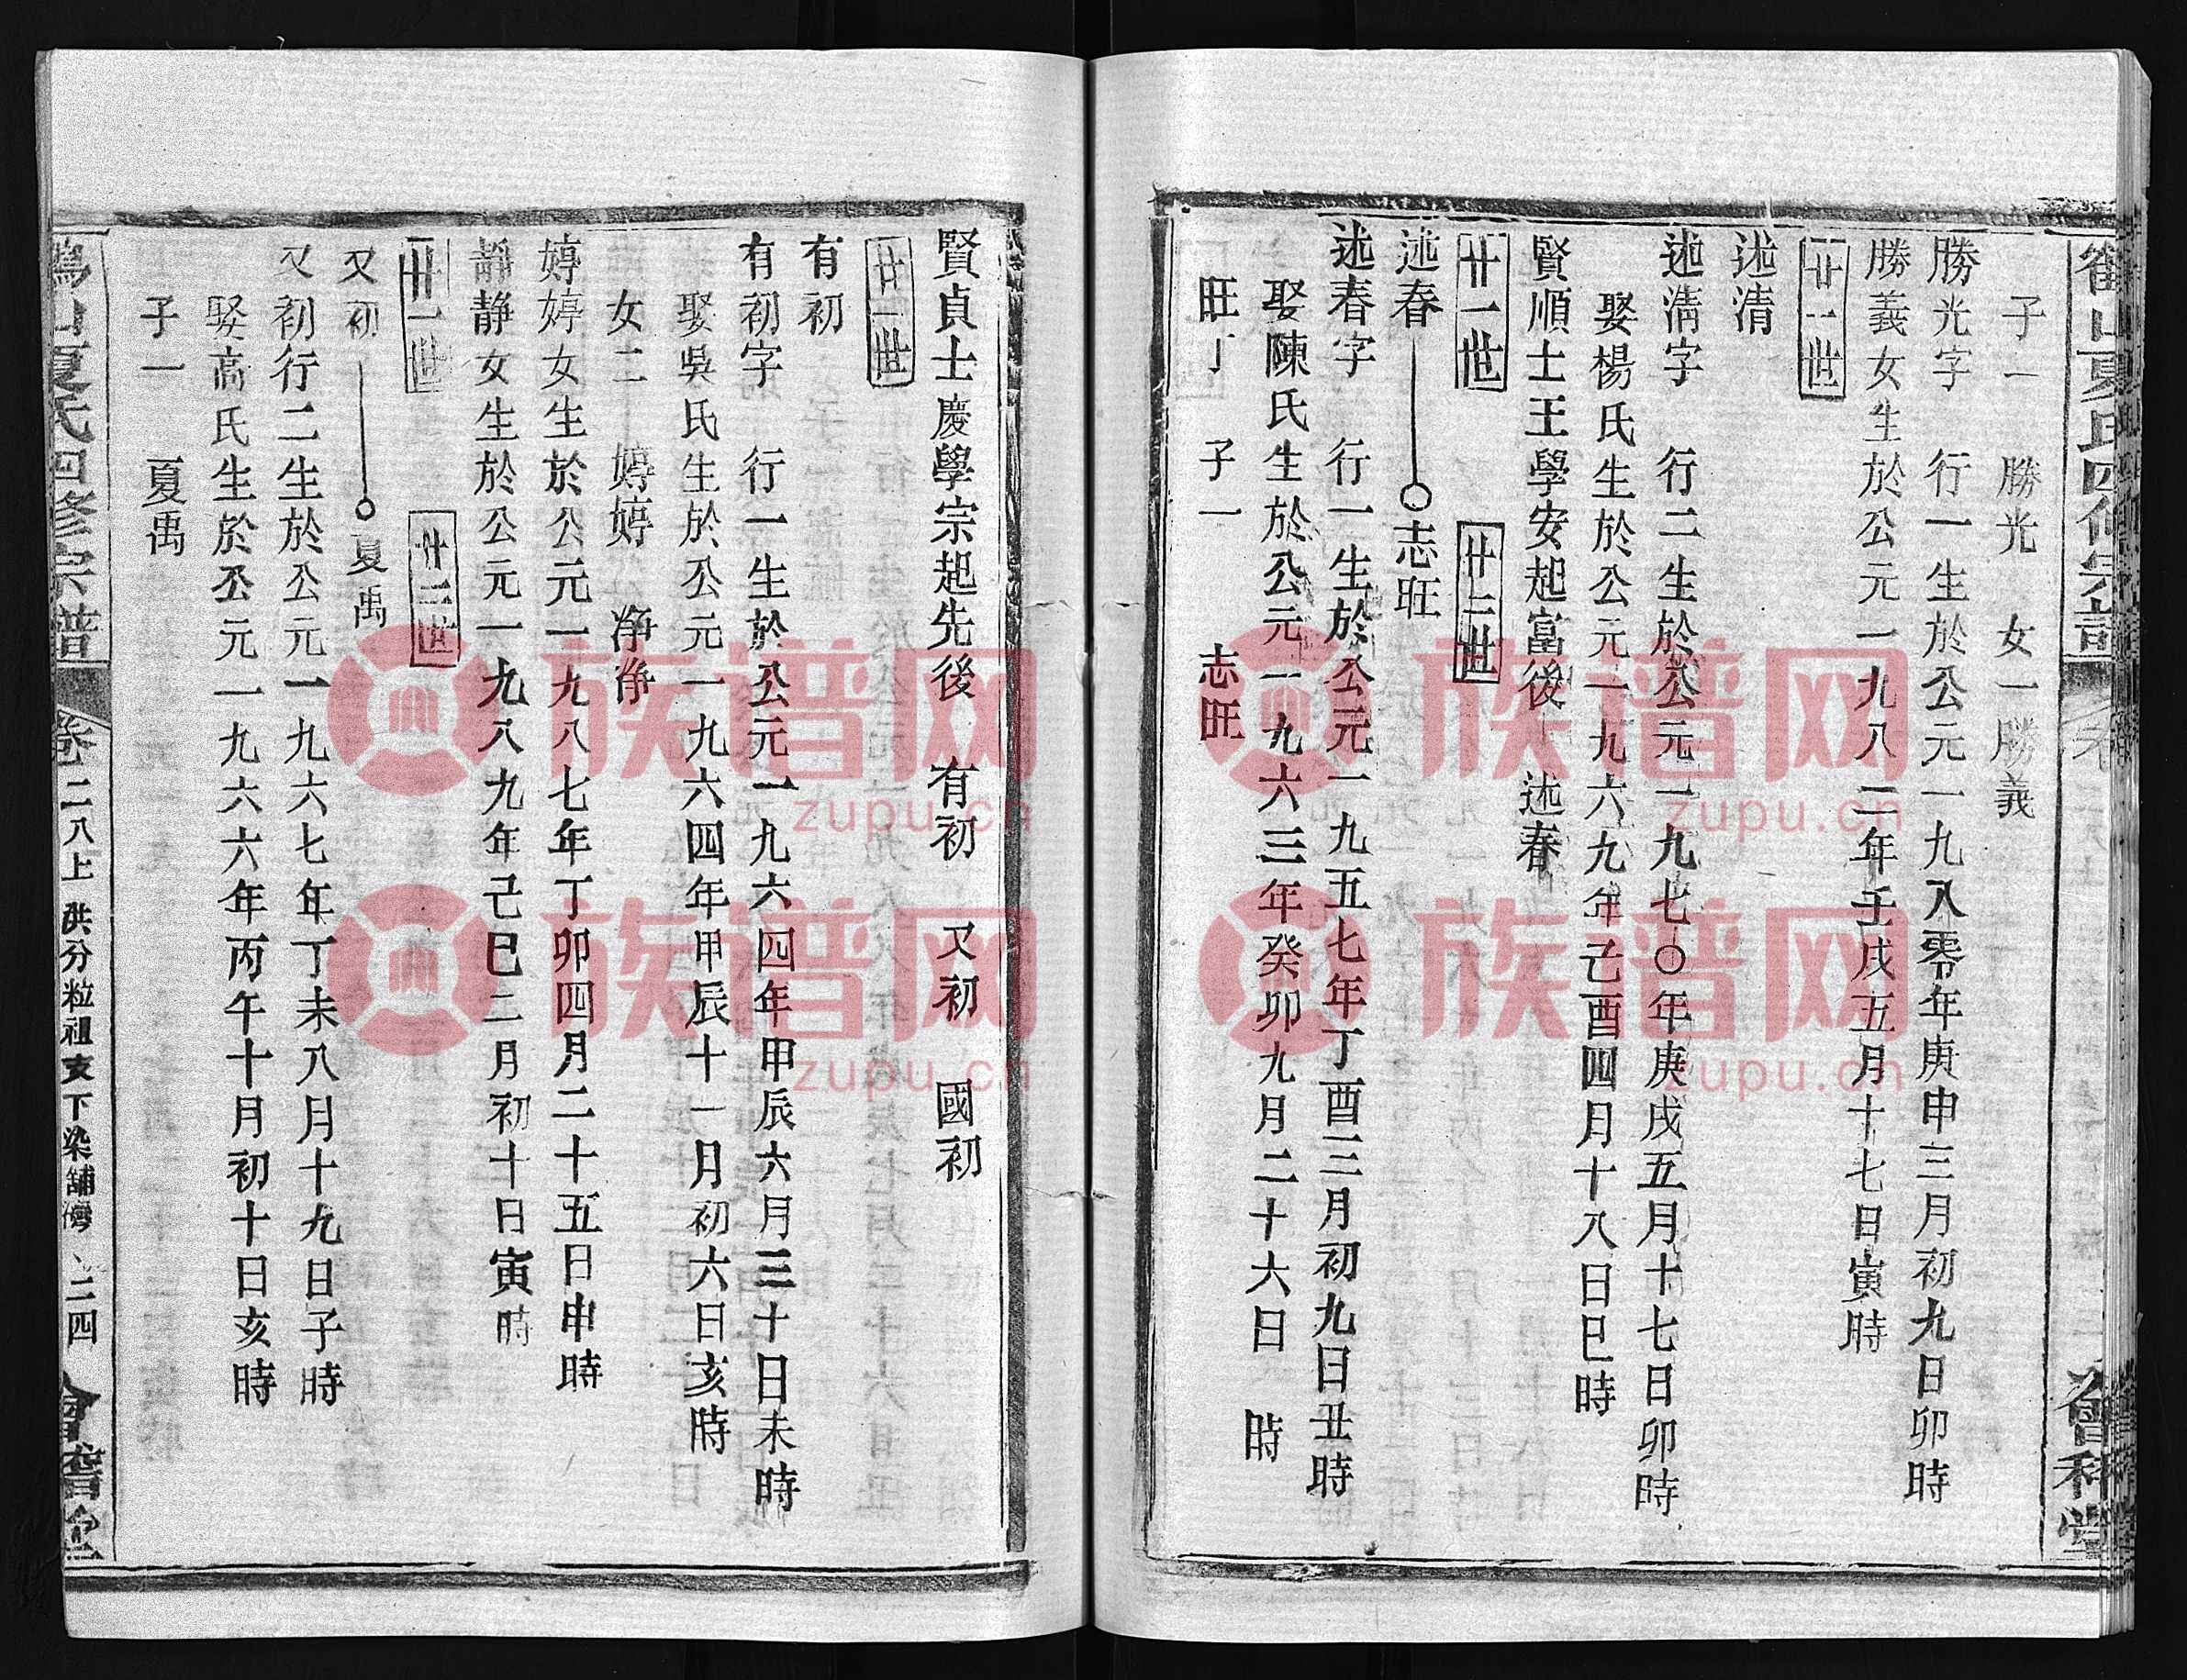 子一　勝光　女一勝義
勝光字　行一生於公元一九八零年庚申三月初九日卯時
勝義女生於公元一九八二年壬戌五月十七日寅時
廿一世
述清
述淸字　行二生於公元一九七〇年庚戌五月十七日卯時
娶楊氏生於公元一九六九年己酉四月十八日巳時
賢順士王學安起富後　述春
廿一世　廿二世
述春　志旺
述春字　行一生於公元一九五七年丁酉三月初九日丑時
娶陳氏生於公元一九六三年癸卯九月二十六日　時
旺丁　子一　志旺
賢貞士慶學宗起先後　有初　又初　國初
廿一世
有初
有初字　行一生於公元一九六四年甲辰六月三十日未時
娶吳氏生於公元一九六四年甲辰十一月初六日亥時
女二　婷婷　净净
婷婷女生於公元一九八七年丁卯四月二十五日申時
靜静女生於公元一九八九年己巳二月初十日寅時
廿一世　廿二世
又初　夏禹
又初行二生於公元一九六七年丁未八月十九日子時
娶高氏生於公元一九六六年丙午十月初十日亥時
子一　夏禹
山夏氏四修宗譜　卷二八上　洪分粒祖支下染舖灣　二四　會稽堂
族谱网
zupu.cn
族谱网
zupu.cn
族谱网
zupu.cn
族谱网
zupu.cn